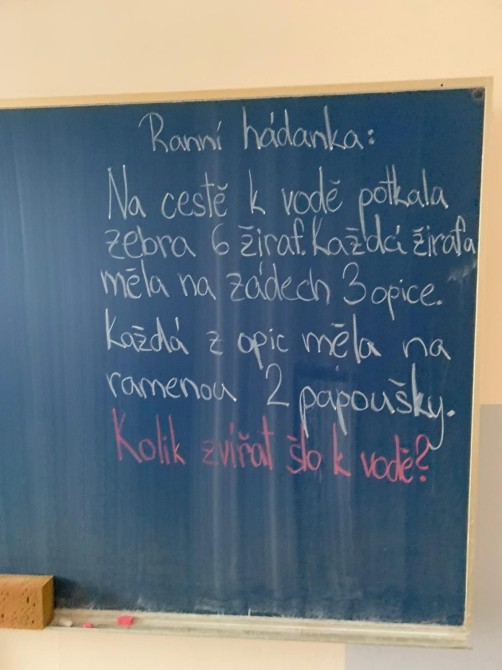 Ranní hádanka:
Na cestě k vodě potkala
zebra 6 žiraf. Každá žirafa
měla na zádech 3 opice.
Každá z opic měla na
ramenou 2 papoušky.
Kolik zvířat šlo k vodě?